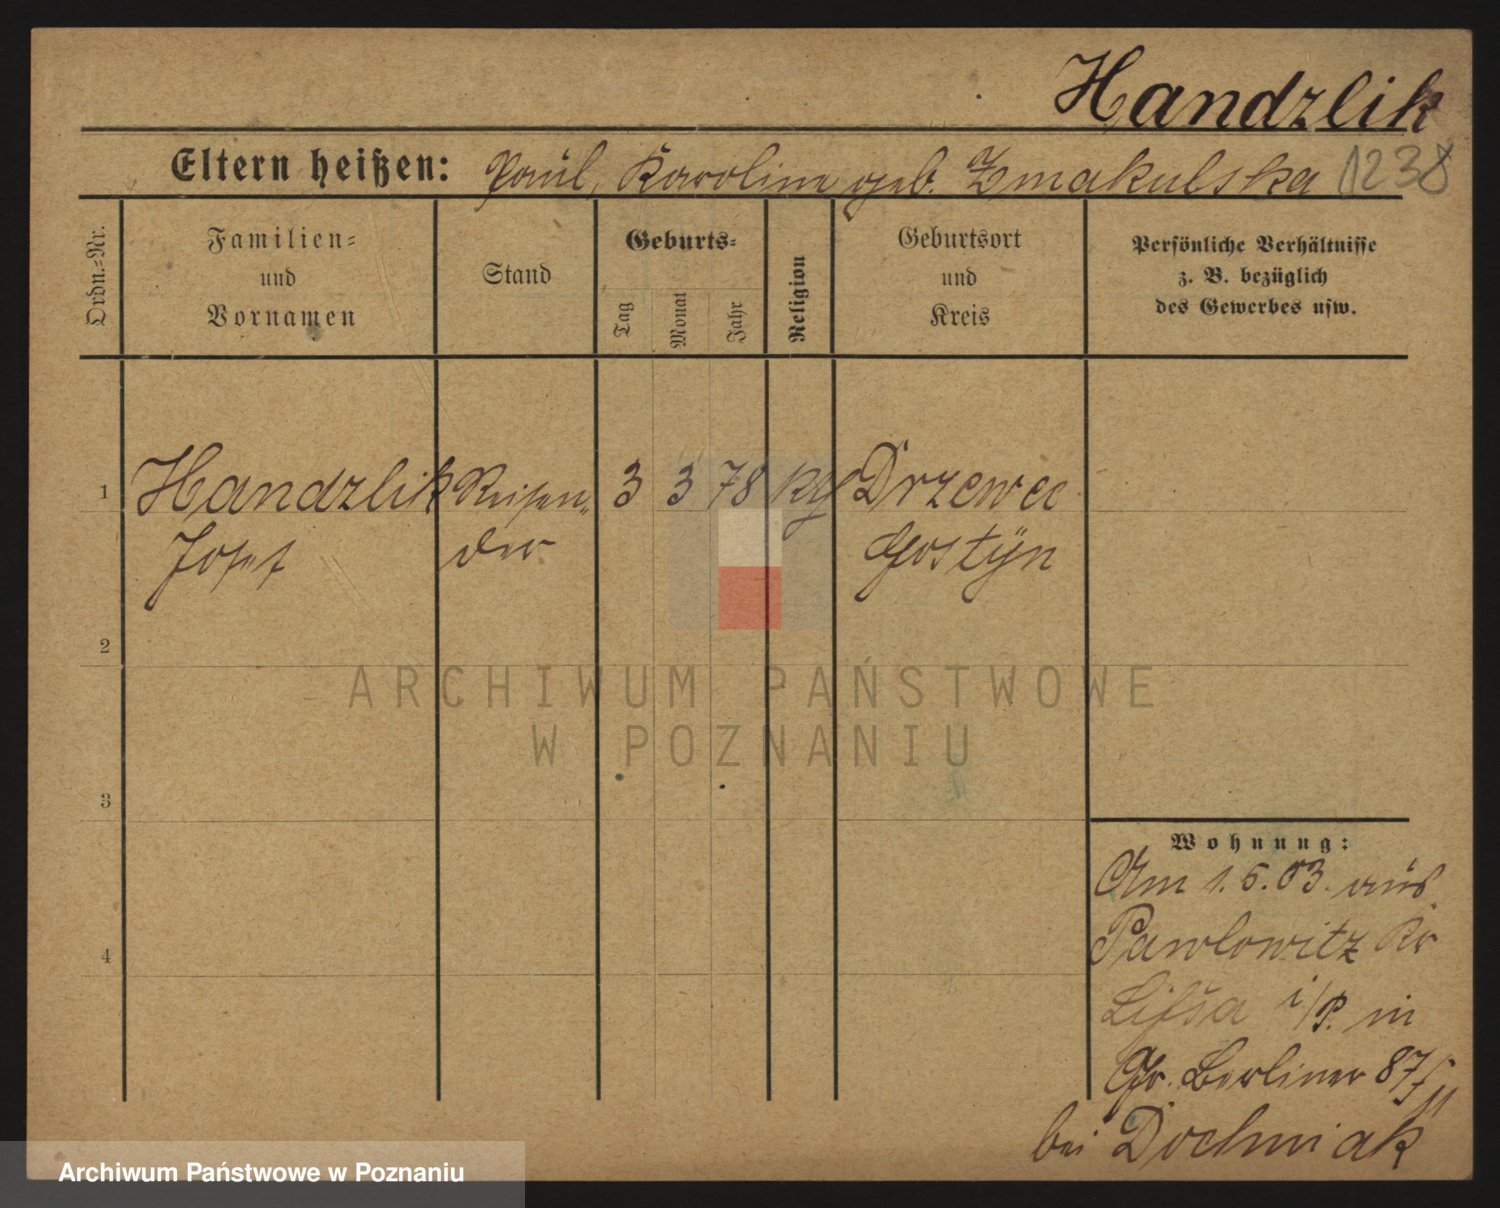 Handzlik
Eltern heißen: Paul, Karoline geb. Zmakulska 1238
Ordn.-Nr.
Familien-
und
Vornamen
Stand
Geburts-
Tag
Monat
Jahr
Religion
Geburtsort
und
Kreis
Persönliche Verhältnisse
z. B. bezüglich
des Gewerbes usw.
1 Handzlik Reisen- 3 3 78 kth Drzewce
Josef der Gostÿn
2
ARCHIWUM PAŃSTWOWE
W POZNANIU
3
Wohnung:
Am 1.5.03. aus
Pawlowitz Kr
4
Lissa i/P. in
Gr. Berliner 87/
bei Dochniak
Archiwum Państwowe w Poznaniu